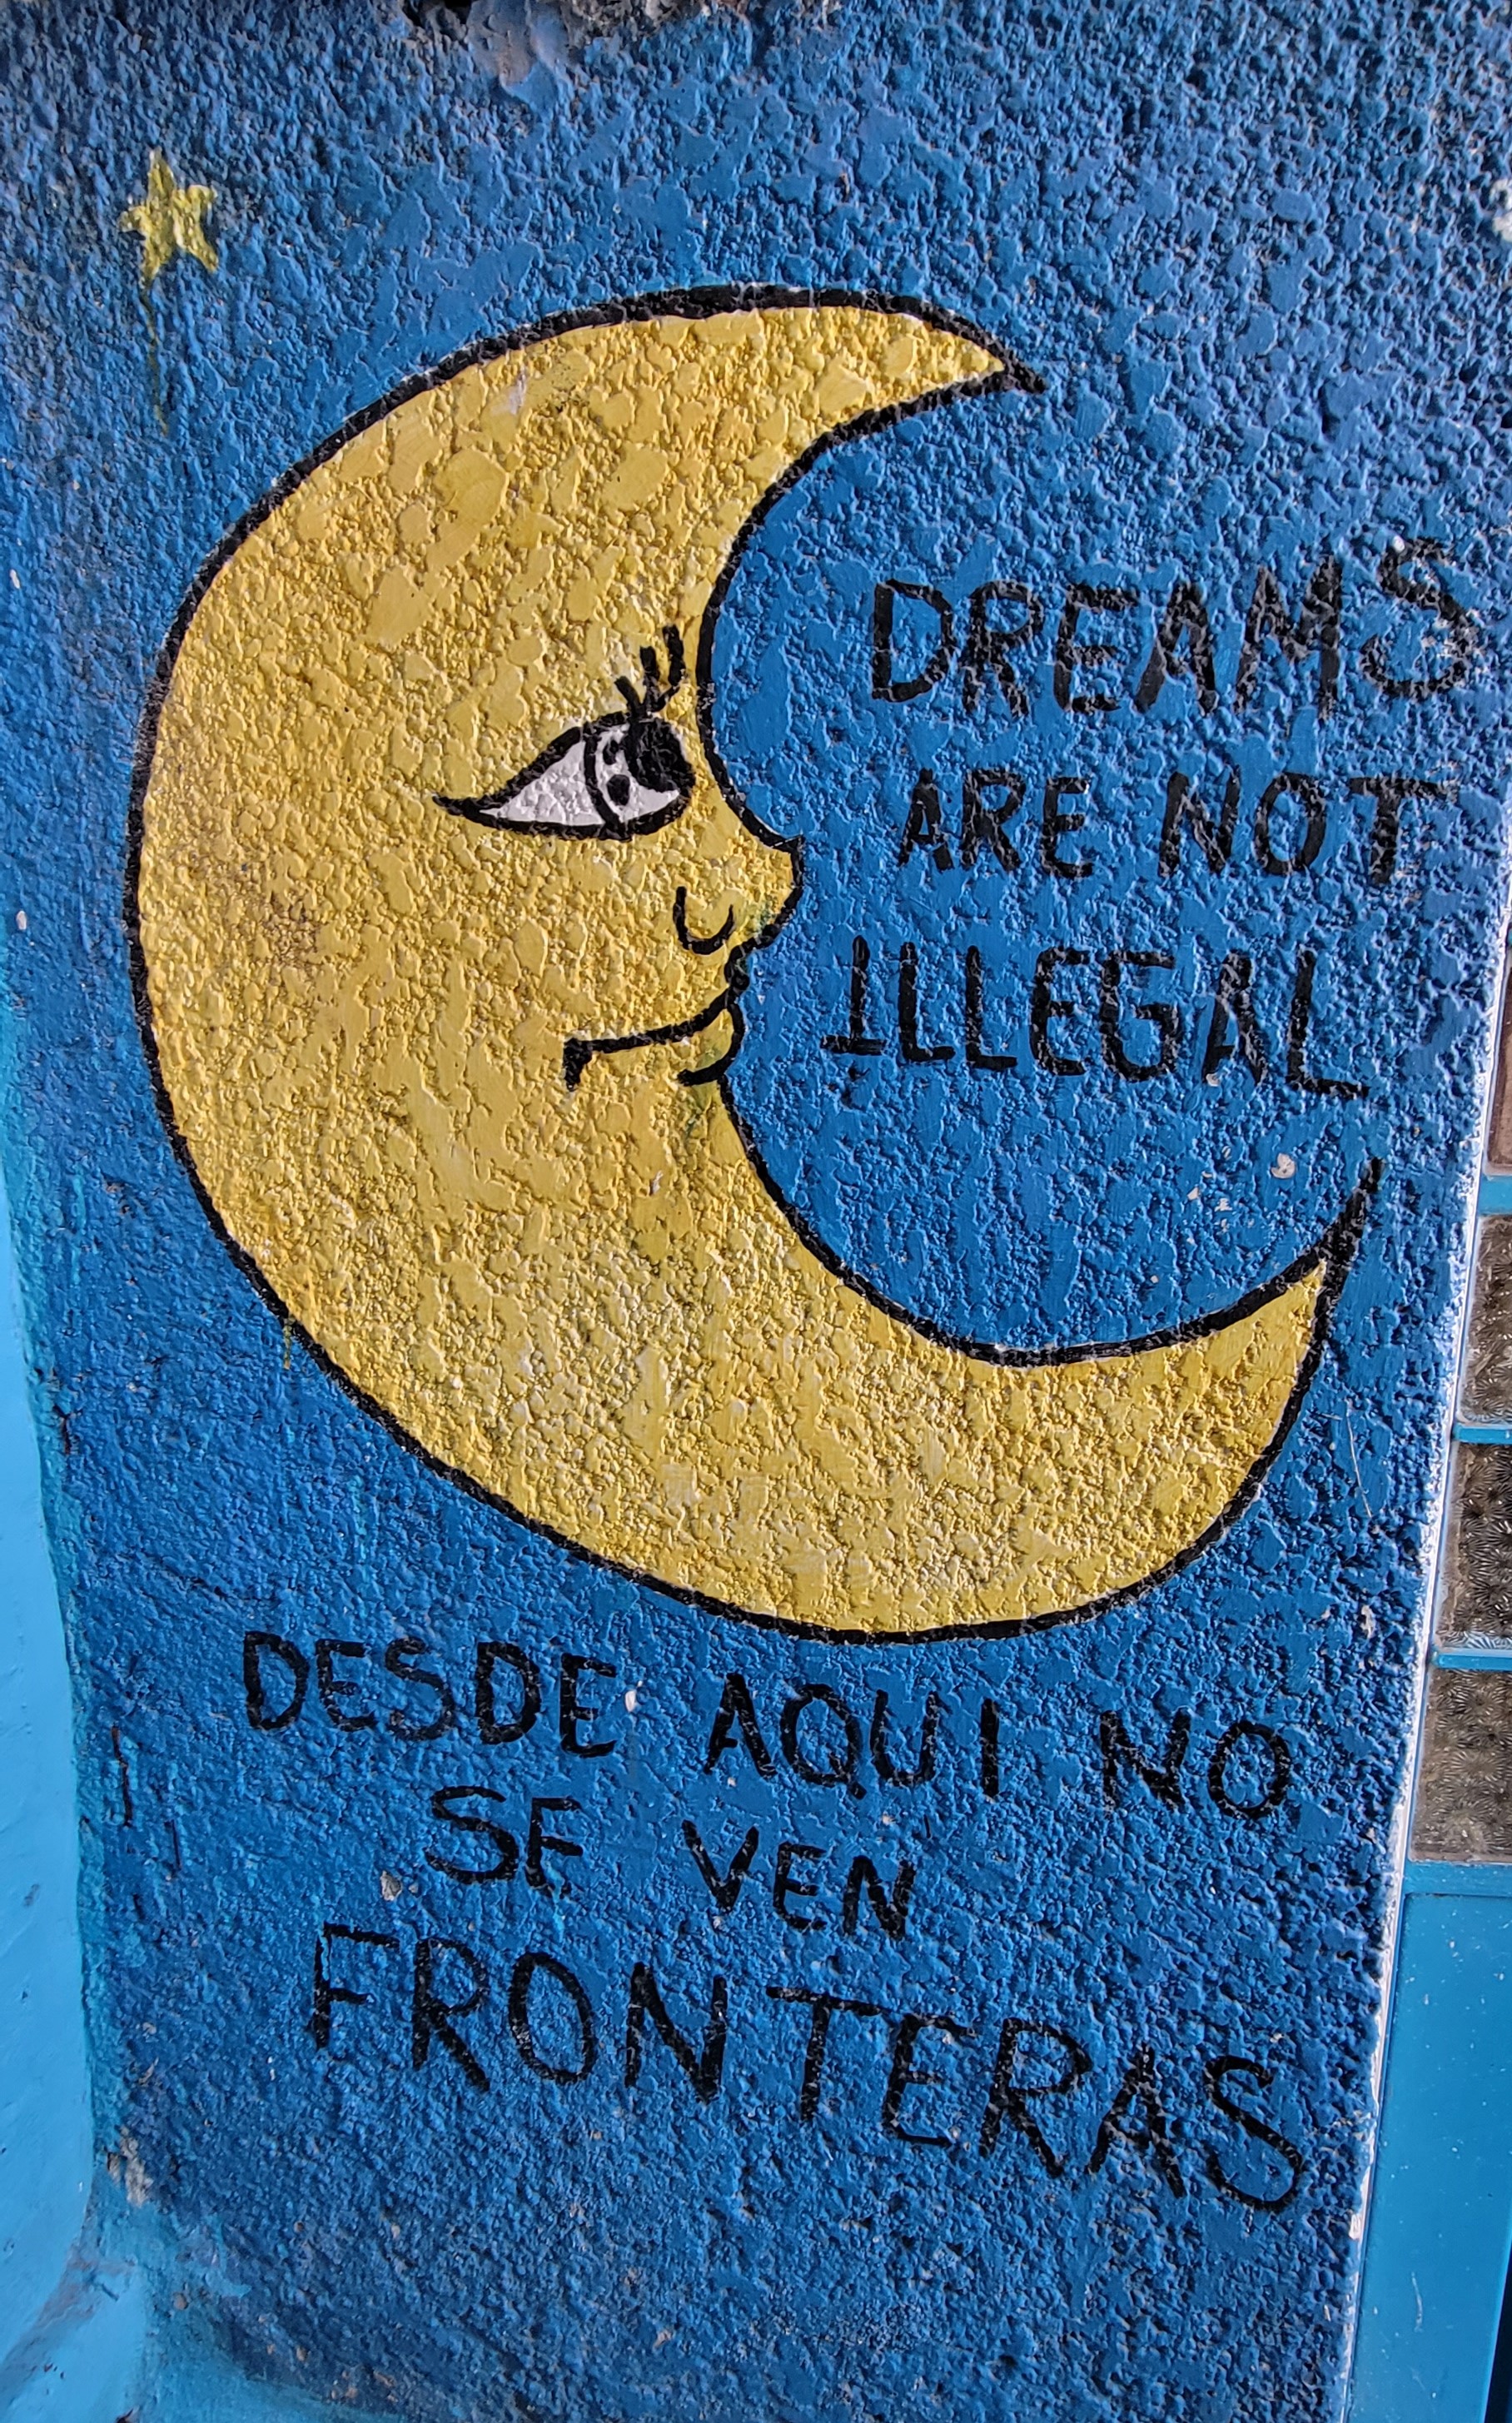 DREAMS
ARE NOT
ILLEGAL
DESDE AQUI NO
SE VEN
FRONTERAS